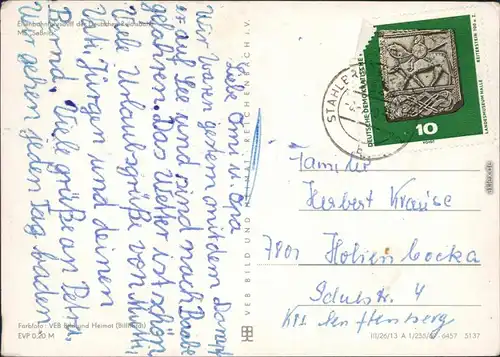 Eisenbahnfährschiff der Deutschen Reichsbahn
MS Saßnitz
Liebe Omi u. Opa
Wir waren gestern mit dem Dampf
er auf See und sind nach Baabe
gefahren. Das Wetter ist schön
Viele Urlaubsgrüße von Mutti
Vati Jürgen und deinen
Bernd. Viele grüße an Petra.
Wir gehen jeden Tag baden
VEB BILD UND HEIMAT REICHENBACH I. V.
STAHLB
DEUTSCHE DEMOKRATISCHE
10
REITERSTEIN 700 n. Z.
LANDESMUSEUM HALLE
Familie
Herbert Krause
7801 Hohenbocka
Schulstr. 4
Krs. Senftenberg
Farbfoto: VEB Bild und Heimat
EVP 0,20 M
III/26/13 A 1/255/67 6457 5137